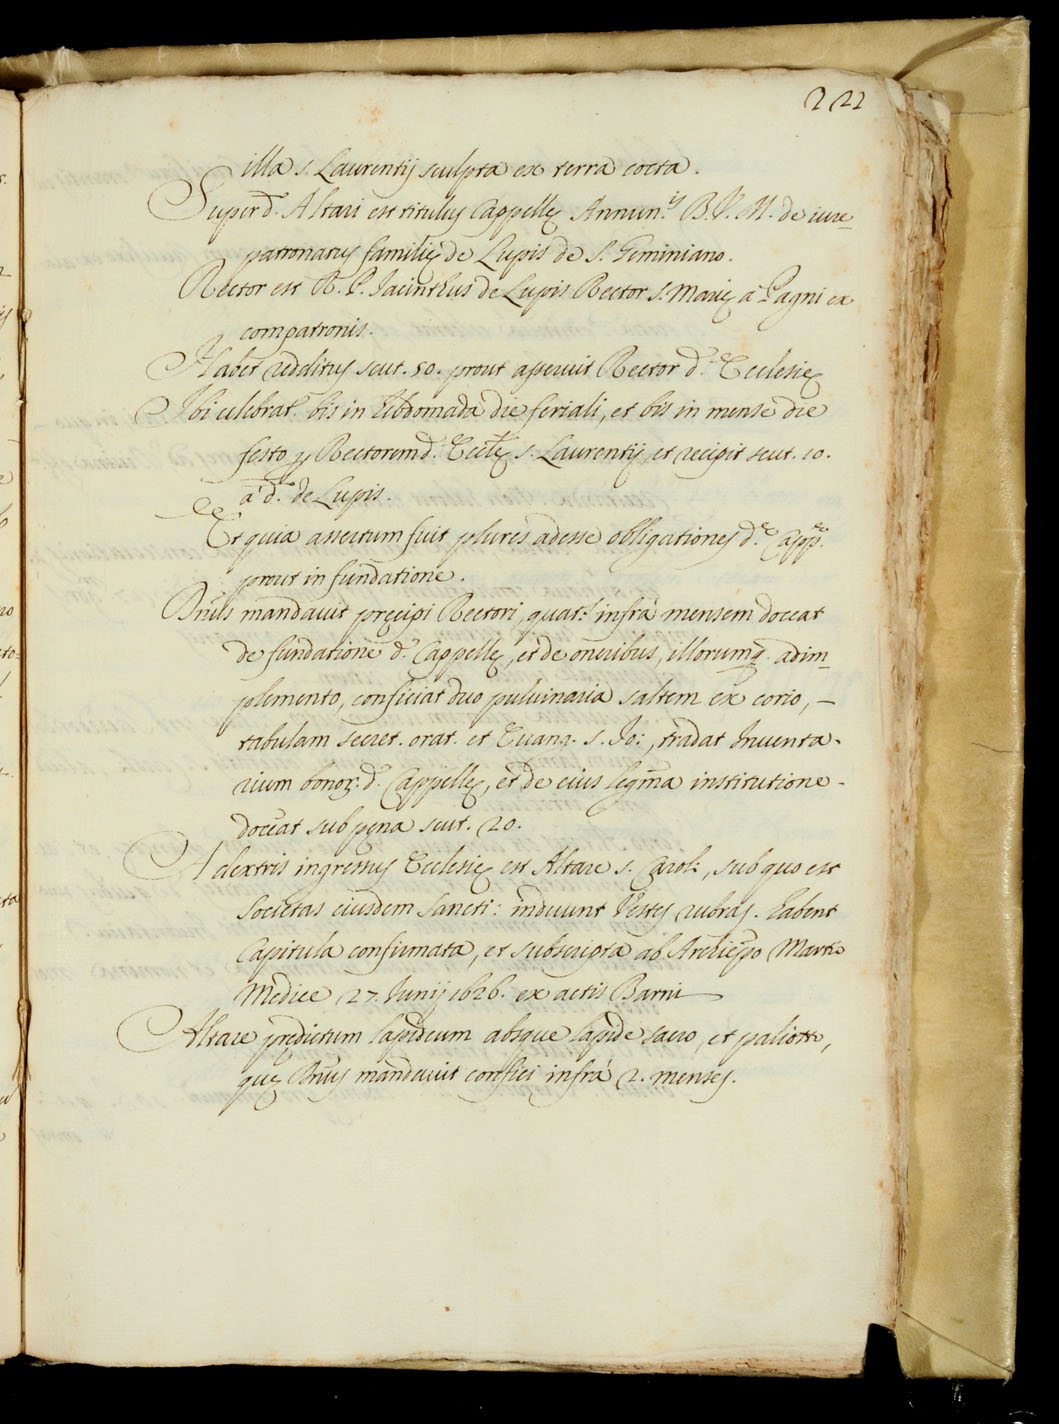 222
illa s. Laurentij sculpta ex terra cocta.
Super d.º Altari est titulus Cappellę Annun.is B.V.M. de iure
patronatus familię de Lupis de S. Geminiano.
Rector est R. P. Iacinthus de Lupis Rector s. Marię à Pagni ex
compatronis.
Habet redditus scut. 50. prout asseruit Rector d.e Ecclesię
Ibi celebrat.r bis in hebdomada die feriali, et bis in mense die
festo ꝑ Rectorem d.e Ecclę s. Laurentij, et recipit scut. 10.
à d.º de Lupis.
Et quia assertum fuit plures adesse obligationes d.e Capp.e
prout in fundatione.
Dnus mandavit pręcipi Rectori, quat.s infrà mensem doceat
de fundatione d.e Cappellę, et de oneribus, illorumq. adim
plemento, conficiat duo pulvinaria saltem ex corio, –
tabulam secret. orat. et Evang. s. Io:, tradat Inventa-
rium bonor. d.e Cappellę, et de eius legma institutione
doceat sub pęna scut. 20.
A dextris ingressus Ecclesię est Altare s. Caroli, sub quo est
societas eiusdem Sancti: induunt Vestes rubras. habent
Capitula confirmata, et subscripta ab Archiepo Martio
Medice 27. Iunij 1626. ex actis Barni
Altare prędictum lapideum absque lapide sacro, et paliotto,
quę Dnus mandavit confici infrà 2. menses.